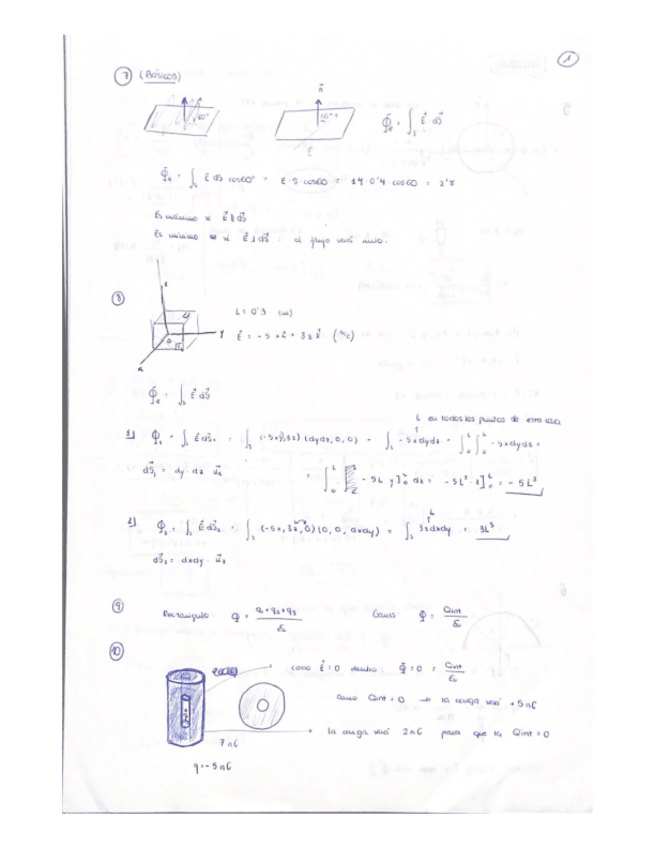 1
7 (BÁSICOS)
n⃗
60°
60°
E⃗
Φe = ∫s E⃗ dS⃗
Φe = ∫s E dS cos60° = E·S·cos60 = 14·0'4·cos60 = 2'8
Es máximo si E⃗ ∥ dS⃗
Es mínimo si E⃗ ⊥ dS⃗ : el flujo será nulo.
8
L = 0'3 (m)
E⃗ = -5x i⃗ + 3z k⃗ (N/C)
Φe = ∫s E⃗ dS⃗
L en todos los puntos de
1) Φ1 = ∫s E⃗ dS1 = ∫s (-5x,0,3z)(dydz,0,0) = ∫s -5xdydz = ∫0^L ∫0^L -5xdydz =
dS⃗1 = dy·dz u⃗x
= ∫0^L -5L y]0^L dz = -5L²·z]0^L = -5L³
2) Φ2 = ∫s E⃗ dS⃗2 = ∫s (-5x,3z,0)(0,0,dxdy) = ∫s 3zdxdy = 3L³
L
dS⃗2 = dxdy·u⃗z
9
Rectángulo: Φ = (q1+q2+q3)/ε0
Gauss Φ = Qint/ε0
10
como E⃗=0 dentro: Φ=0 = Qint/ε0
como Qint=0 → la carga será +5nC
la carga será 2nC para que la Qint=0
7nC
q=-5nC